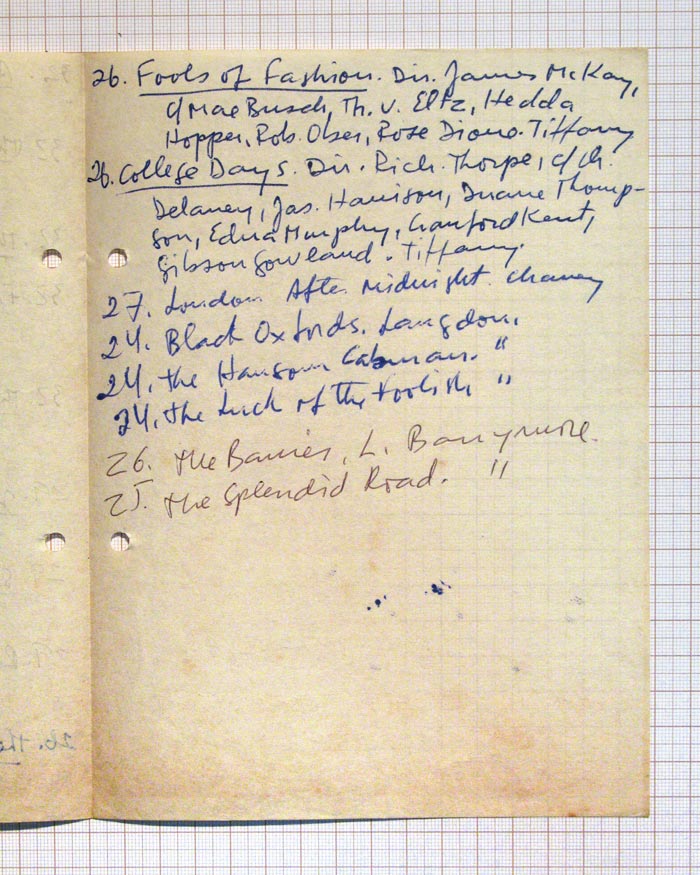 26. Fools of Fashion. Dir. James McKay,
c/ Mae Busch, Th. v. Eltz, Hedda
Hopper, Rob. Ober, Rose Dione. Tiffany
26. College Days. Dir. Rich. Thorpe, c/ Ch.
Delaney, Jas. Harrison, Duane Thomp-
son, Edna Murphy, Crauford Kent,
Gibson Gowland. Tiffany.
27. London After Midnight. Chaney
24. Black Oxfords. Langdon.
24. The Hansom Cabman. "
24. The Luck of the Foolish "
26. The Barrier, L. Barrymore.
25. The Splendid Road. "